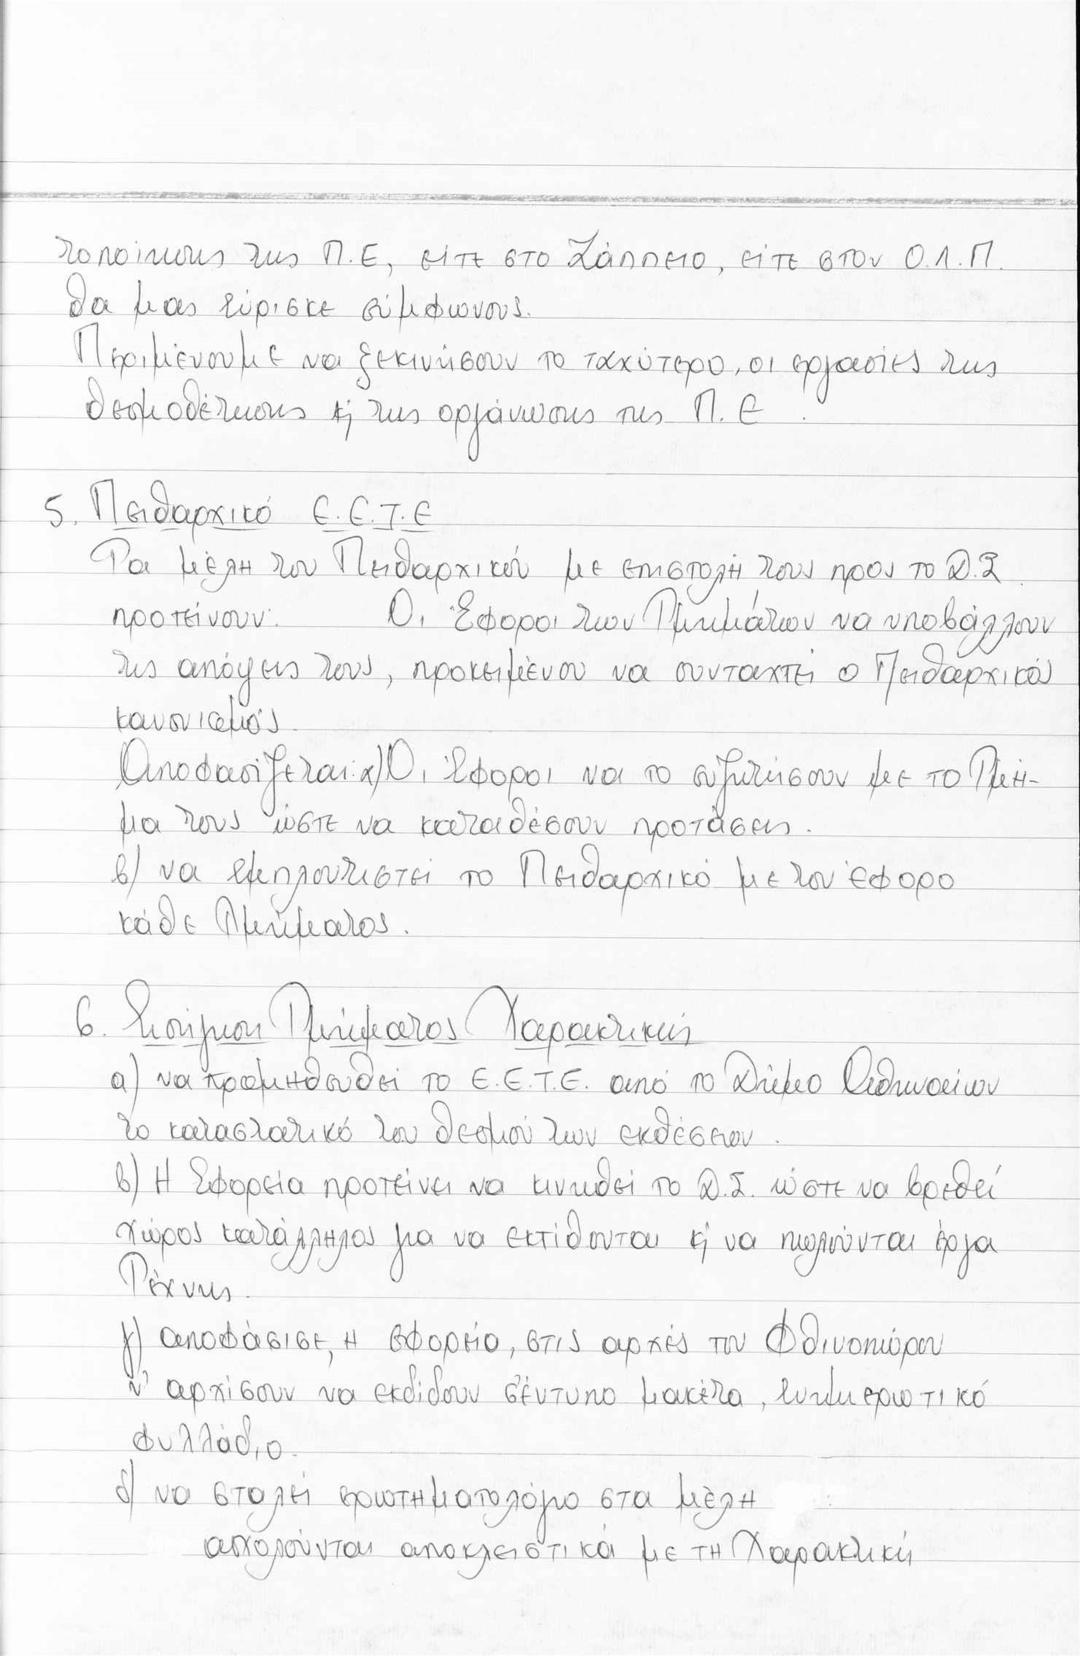 τοποίησης της Π.Ε, είτε στο Ζάππειο, είτε στον Ο.Λ.Π.
θα μας εύρισκε σύμφωνους.
Περιμένουμε να ξεκινήσουν το ταχύτερο, οι εργασίες της
θεσμοθέτησης κ' της οργάνωσης της Π.Ε.
5. Πειθαρχικό Ε.Ε.Τ.Ε
Τα μέλη του Πειθαρχικού με επιστολή τους προς το Δ.Σ
προτείνουν: Οι Έφοροι των Τμημάτων να υποβάλλουν
τις απόψεις τους, προκειμένου να συνταχτεί ο Πειθαρχικός
κανονισμός.
Αποφασίζεται: α) Οι Έφοροι να το συζητήσουν με το Τμή-
μα τους ώστε να καταθέσουν προτάσεις.
β) να εμπλουτιστεί το Πειθαρχικό με τον έφορο
κάθε Τμήματος.
6. Εισήγηση Τμήματος Χαρακτικής
α) να προμηθευθεί το Ε.Ε.Τ.Ε. από το Δήμο Αθηναίων
το καταστατικό του θεσμού των εκθέσεων.
β) Η Εφορεία προτείνει να κινηθεί το Δ.Σ. ώστε να βρεθεί
χώρος κατάλληλος για να εκτίθονται κ' να πωλούνται έργα
Τέχνης.
γ) αποφάσισε, η εφορεία, στις αρχές του Φθινοπώρου
ν' αρχίσουν να εκδίδουν σ' έντυπο μακέτα, ενημερωτικό
φυλλάδιο.
δ) να σταλεί ερωτηματολόγιο στα μέλη
ασχολούνται αποκλειστικά με τη Χαρακτική